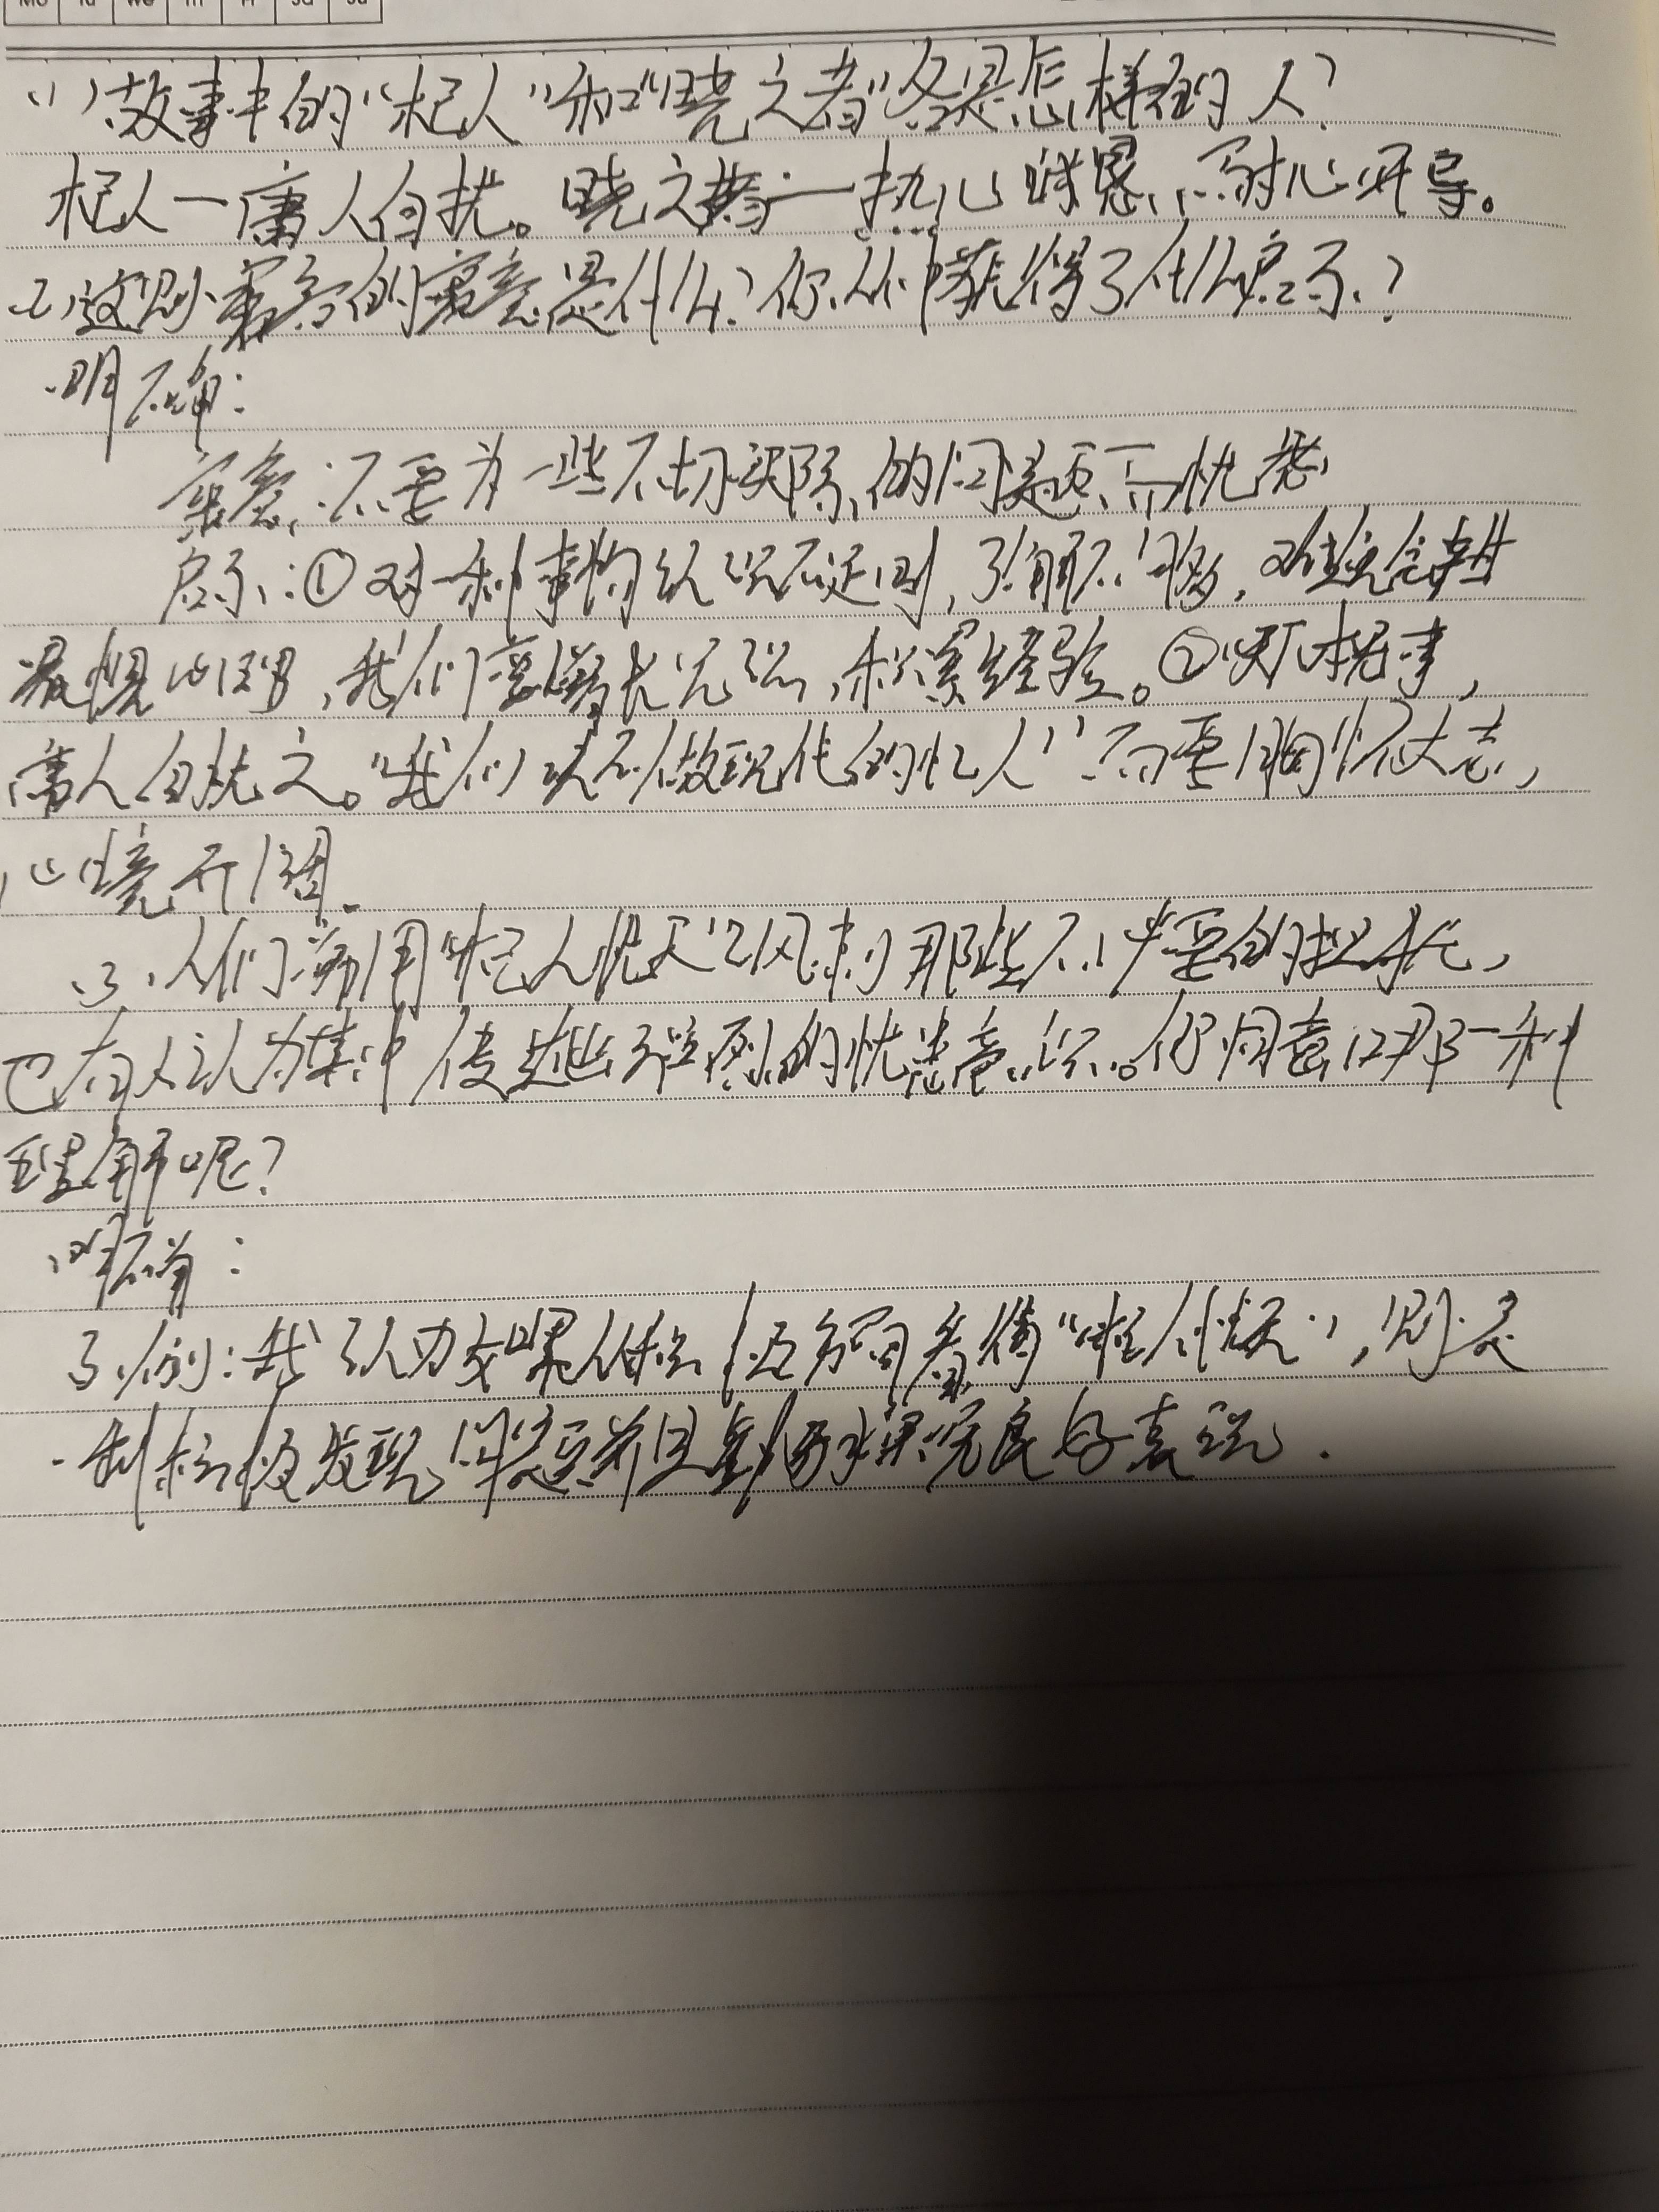 Mo Tu We Th Fr Sa Su
(1)故事中的“杞人”和“晓之者”各是怎样的人?
杞人一庸人自扰。晓之者一热心诚恳、耐心开导。
2、这则寓言的寓意是什么?你从中获得了什么启示?
明确:
寓意:不要为一些不切实际的问题而忧愁
启示:①对一种事物认识不足时,了解不够,难免会产生
畏惧心理,我们要增长见识,积累经验。②天下本无事,
庸人自扰之。“我们决不做现代的忆人”而要胸怀大志,
心境开阔.
3、人们常用“杞人忧天”讽刺那些不必要的担扰,
也有人认为其中传达出强烈的忧患意识。你同意哪一种
理解呢?
明确:
示例:我认为如果人们看待“杞人忧天”,则是
一种积极发现问题并且良好表现.